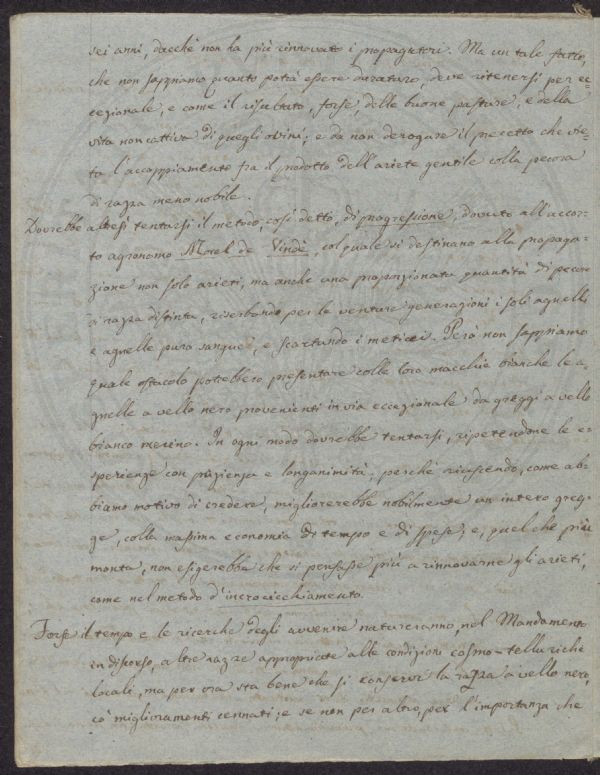 sei anni, dacchè non ha più rinnovato i propagatori. Ma un tale fatto,
che non sappiamo quanto potrà essere duraturo, deve ritenersi per ec-
cezionale, e come il risultato, forse, delle buone pasture, e della
vita non cattiva di quegli ovini; e da non derogare il precetto che vie-
ta l'accoppiamento fra il prodotto dell'ariete gentile colla pecora
di razza meno nobile.
Dovrebbe altresì tentarsi il metodo, così detto, di progressione, dovuto all'accor-
to agronomo Morel de Vindé, col quale si destinano alla propaga-
zione non solo arieti, ma anche una proporzionata quantità di pecore
di razza distinta, riserbando per le venture generazioni i soli agnelli
e agnelle puro sangue, e scartando i meticci. Però non sappiamo
quale ostacolo potrebbero presentare colle loro macchie bianche le a-
gnelle a vello nero provenienti in via eccezionale da greggi a vello
bianco merino. In ogni modo dovrebbe tentarsi, ripetendone le e-
sperienze con pazienza e longanimità, perchè riuscendo, come ab-
biamo motivo di credere, migliorerebbe nobilmente un intero greg-
ge, colla massima economia di tempo e di spese, e, quel che più
monta, non esigerebbe che si pensasse più a rinnovarne gli arieti,
come nel metodo d'incrocicchiamento.
Forse il tempo e le ricerche degli avvenire natureranno, nel Mandamento
in discorso, altre razze appropriate alle condizioni cosmo-telluriche
locali, ma per ora sta bene che si conservi la razza a vello nero,
co' miglioramenti cennati; e se non per altro, per l'importanza che